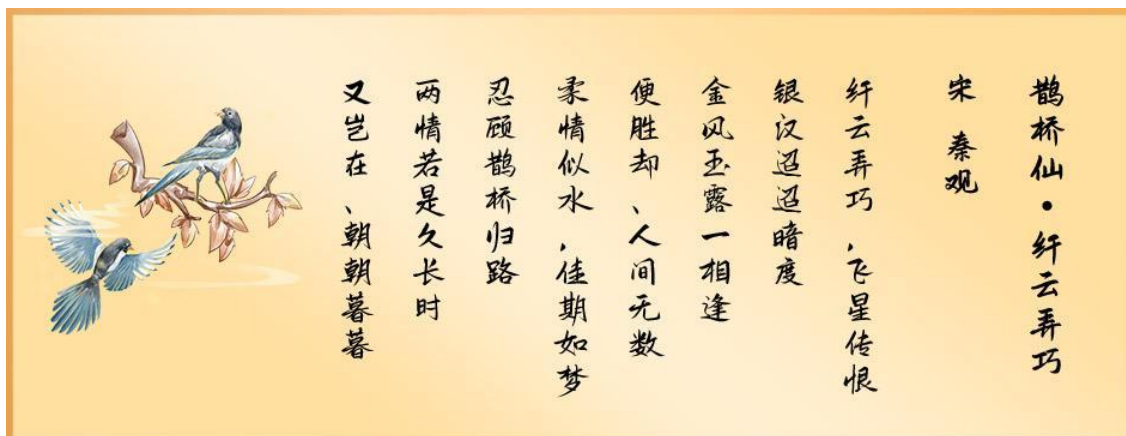 鹊桥仙·纤云弄巧
宋 秦观
纤云弄巧，飞星传恨
银汉迢迢暗度
金风玉露一相逢
便胜却、人间无数
柔情似水，佳期如梦
忍顾鹊桥归路
两情若是久长时
又岂在、朝朝暮暮